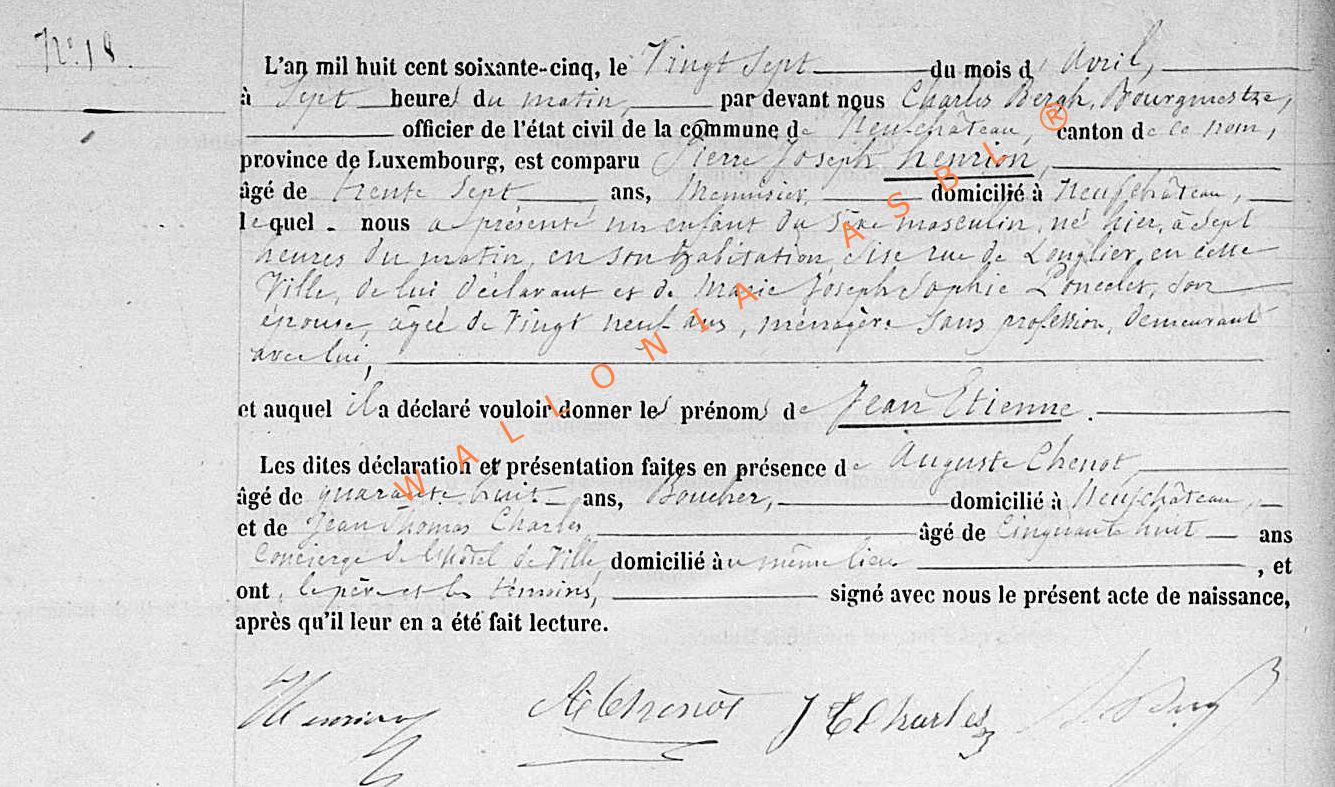 N° 18.
L'an mil huit cent soixante-cinq, le Vingt Sept du mois d'Avril,
à Sept heures du matin, par devant nous Charles Bergh, Bourgmestre,
officier de l'état civil de la commune de Neufchâteau, canton de ce nom,
province de Luxembourg, est comparu Pierre Joseph henrion,
âgé de trente Sept ans, Menuisier, domicilié à Neufchâteau,
lequel nous a présenté un enfant du Sèxe masculin, né hier, à Sept
heures du matin, en son habitation, sise rue de Longlier, en cette
Ville, de lui déclarant et de Marie Joseph Sophie Poncelet, son
épouse, âgée de Vingt neuf ans, ménagère sans profession, demeurant
avec lui,
et auquel il a déclaré vouloir donner les prénoms de Jean Etienne.
Les dites déclaration et présentation faites en présence de Auguste Chenot,
âgé de quarante huit ans, Boucher, domicilié à Neufchâteau,
et de Jean Thomas Charles âgé de Cinquante huit ans
Concierge de l'hôtel de Ville, domicilié au même lieu , et
ont, le père et les témoins, signé avec nous le présent acte de naissance,
après qu'il leur en a été fait lecture.
Henrion AChenot J T Charles
WALLONIA ASBL ®